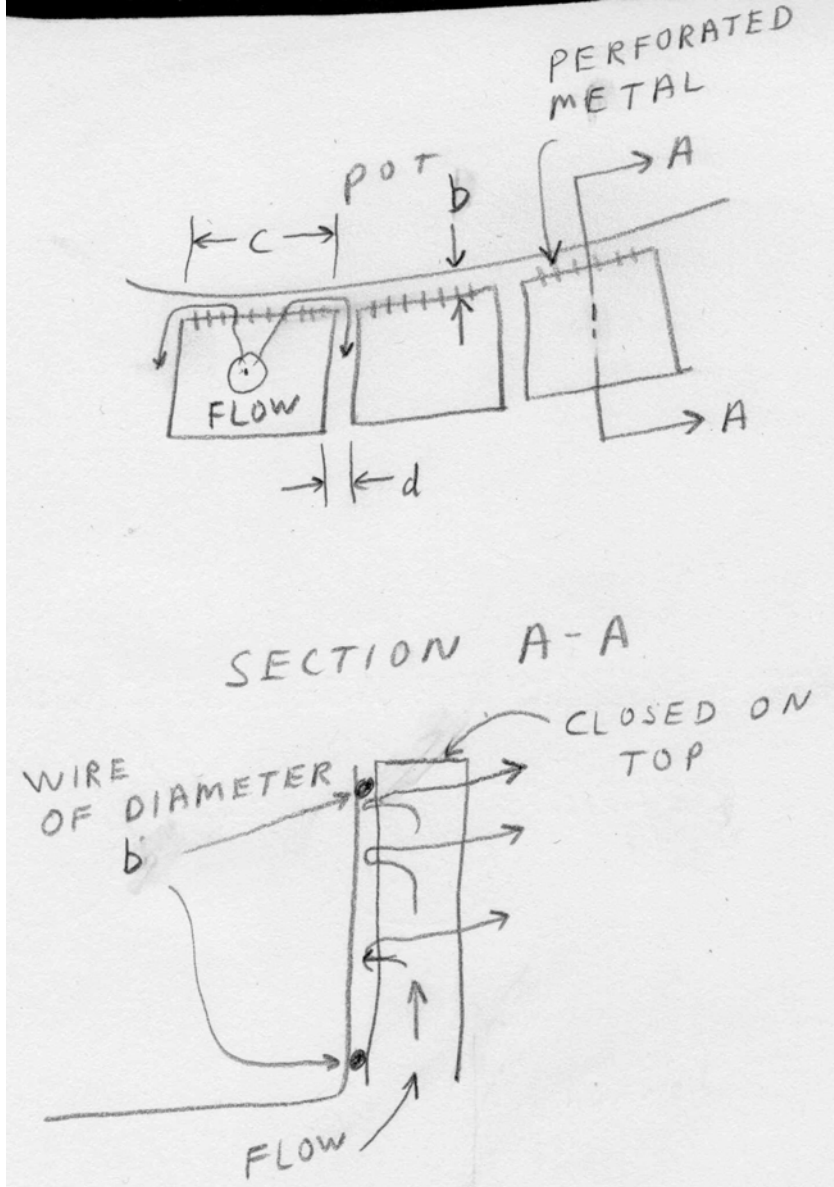 PERFORATED
METAL
A
POT
b
C
FLOW
A
d
SECTION A-A
CLOSED ON
TOP
WIRE
OF DIAMETER
b
FLOW